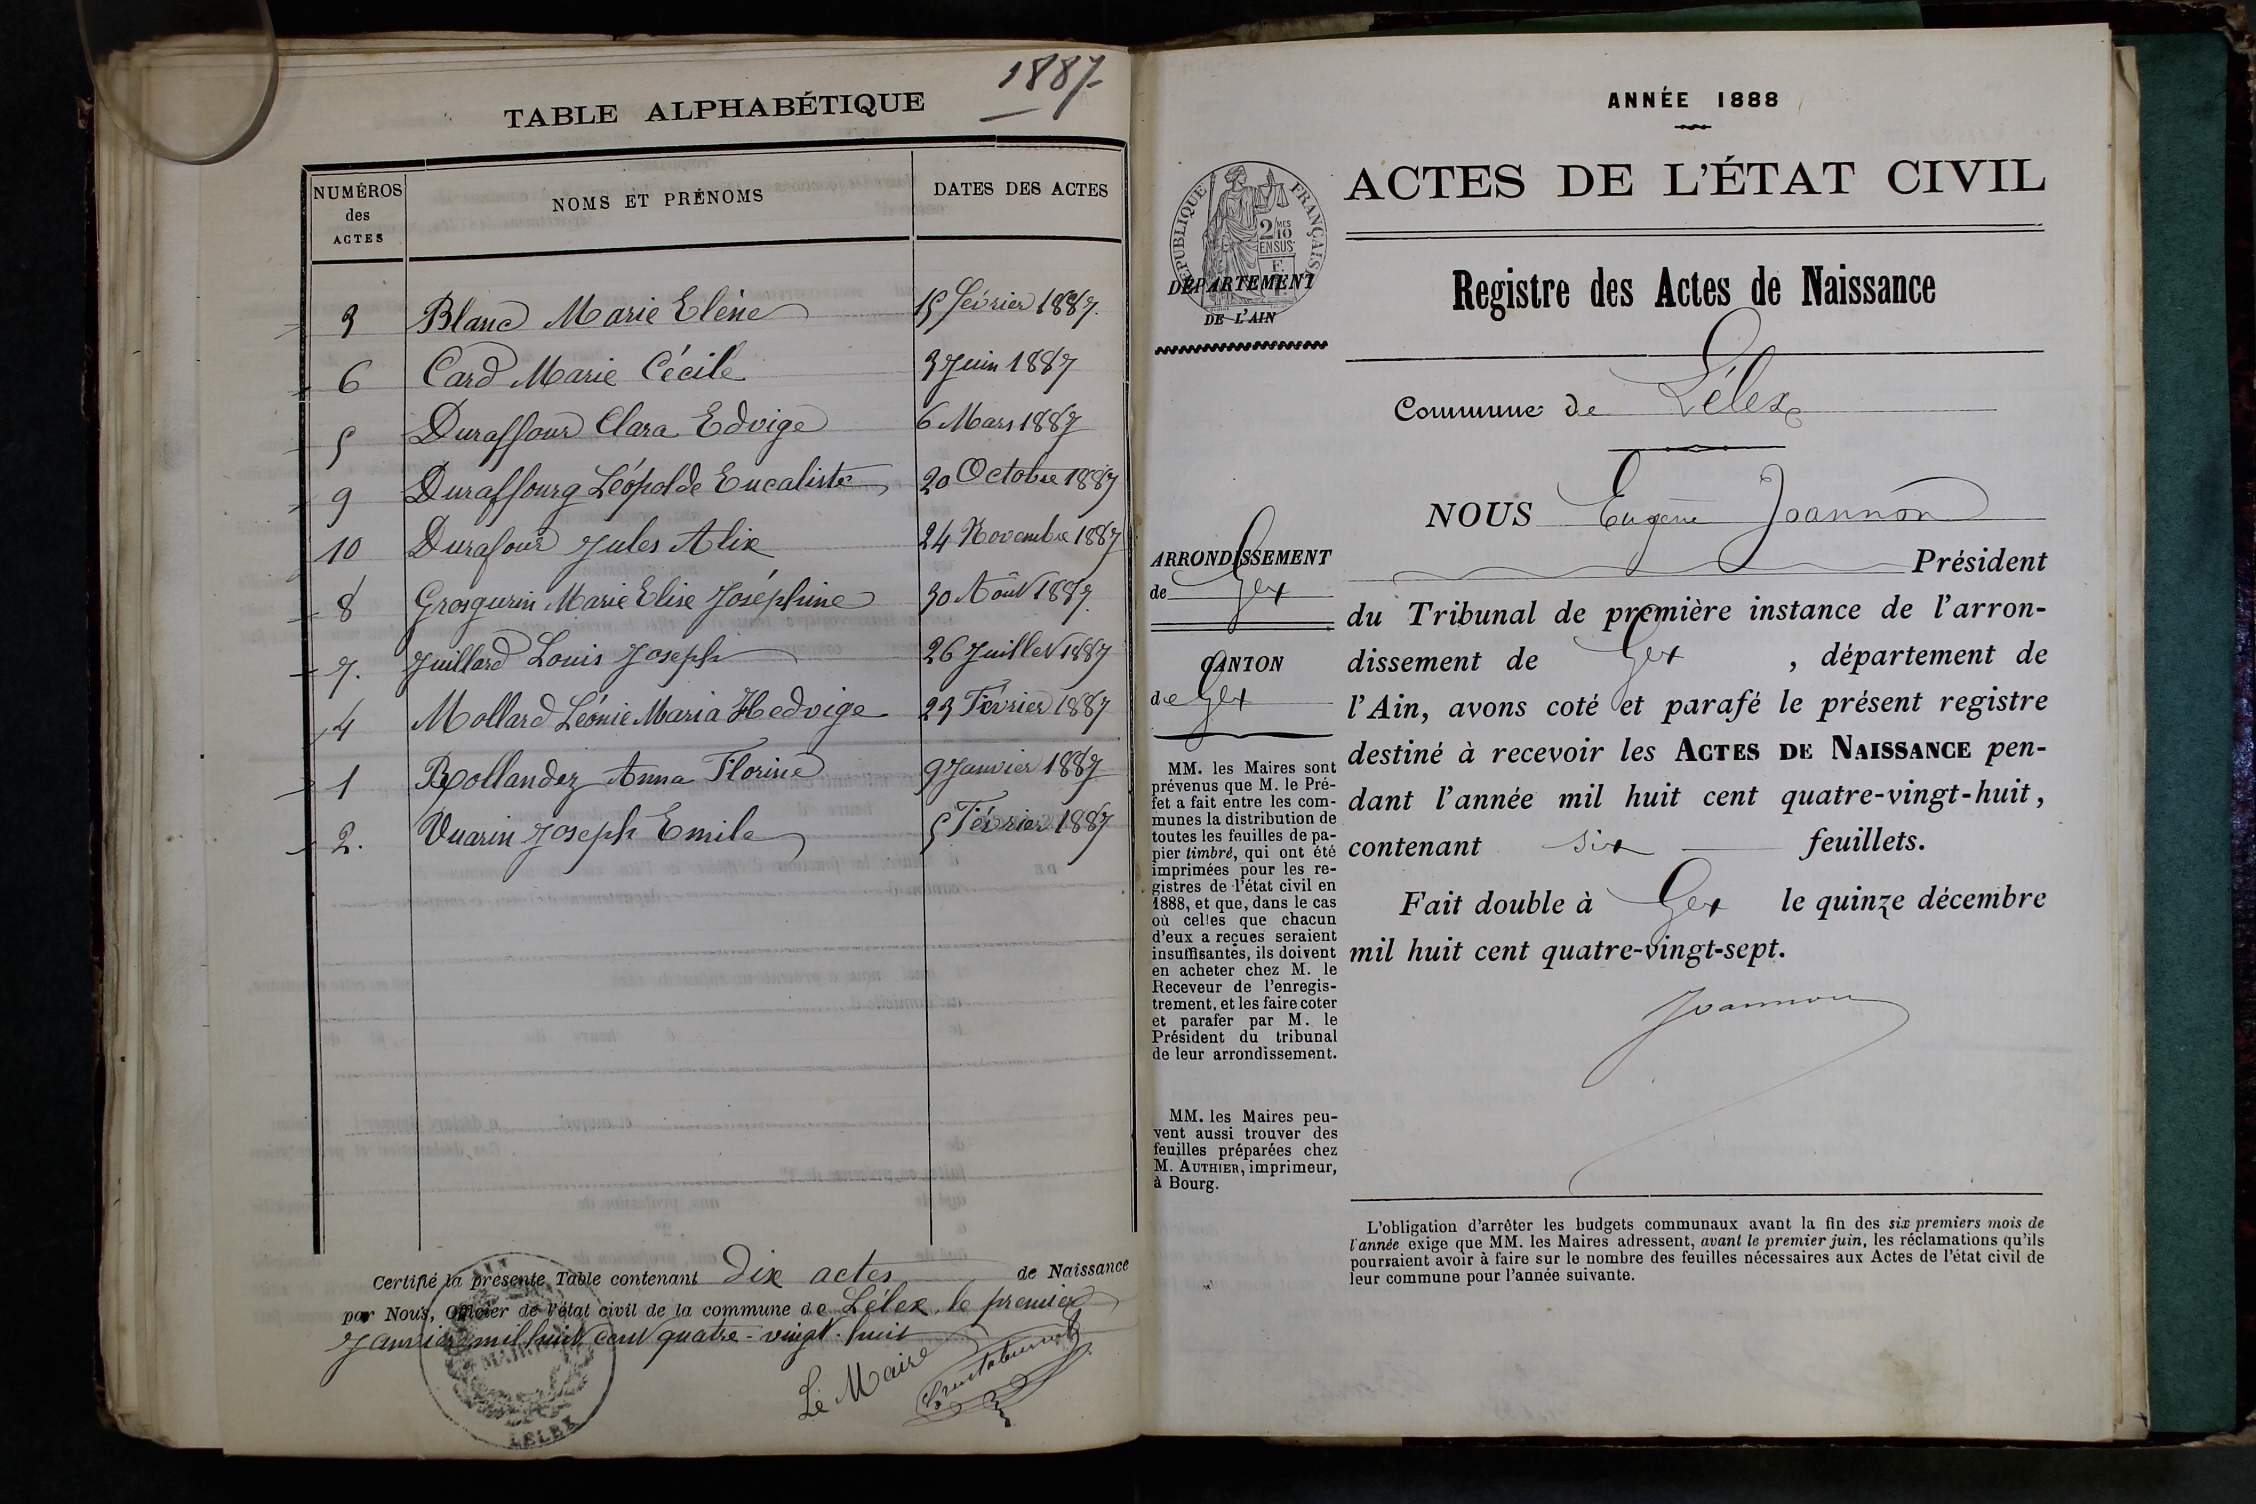 1887
TABLE ALPHABÉTIQUE
NUMÉROS des ACTES
NOMS ET PRÉNOMS
DATES DES ACTES
3 Blanc Marie Elène 15 février 1887.
6 Card Marie Cécile 3 Juin 1887
5 Duraffour Clara Edvige 6 Mars 1887
9 Duraffourg Léopolde Eucaliste 20 Octobre 1887
10 Durafour Jules Alix 24 Novembre 1887
8 Grosgurin Marie Elise Joséphine 30 Août 1887.
7. Juillard Louis Joseph 26 Juillet 1887
4 Mollard Léonie Maria Hedvige 23 Février 1887
1 Rollandez Anna Florine 9 Janvier 1887
2. Vuarin Joseph Emile 5 Février 1887
Certifié la présente Table contenant Dix actes de Naissance
par Nous, Officier de l'état civil de la commune de Lélex. le premier
Janvier mil huit cent quatre-vingt-huit
Le Maire
MAIRIE
LELEX
ANNÉE 1888
ACTES DE L'ÉTAT CIVIL
RÉPUBLIQUE FRANÇAISE
2/10 MES
EN SUS
DÉPARTEMENT
DE L'AIN
Registre des Actes de Naissance
Commune de Lélex
NOUS Eugène Joannon
Président
du Tribunal de première instance de l'arron-
dissement de Gex, département de
l'Ain, avons coté et parafé le présent registre
destiné à recevoir les ACTES DE NAISSANCE pen-
dant l'année mil huit cent quatre-vingt-huit,
contenant six feuillets.
Fait double à Gex le quinze décembre
mil huit cent quatre-vingt-sept.
Joannon
ARRONDISSEMENT
de Gex
CANTON
de Gex
MM. les Maires sont
prévenus que M. le Pré-
fet a fait entre les com-
munes la distribution de
toutes les feuilles de pa-
pier timbré, qui ont été
imprimées pour les re-
gistres de l'état civil en
1888, et que, dans le cas
où celles que chacun
d'eux a reçues seraient
insuffisantes, ils doivent
en acheter chez M. le
Receveur de l'enregis-
trement, et les faire coter
et parafer par M. le
Président du tribunal
de leur arrondissement.
MM. les Maires peu-
vent aussi trouver des
feuilles préparées chez
M. AUTHIER, imprimeur,
à Bourg.
L'obligation d'arrêter les budgets communaux avant la fin des six premiers mois de
l'année exige que MM. les Maires adressent, avant le premier juin, les réclamations qu'ils
pourraient avoir à faire sur le nombre des feuilles nécessaires aux Actes de l'état civil de
leur commune pour l'année suivante.